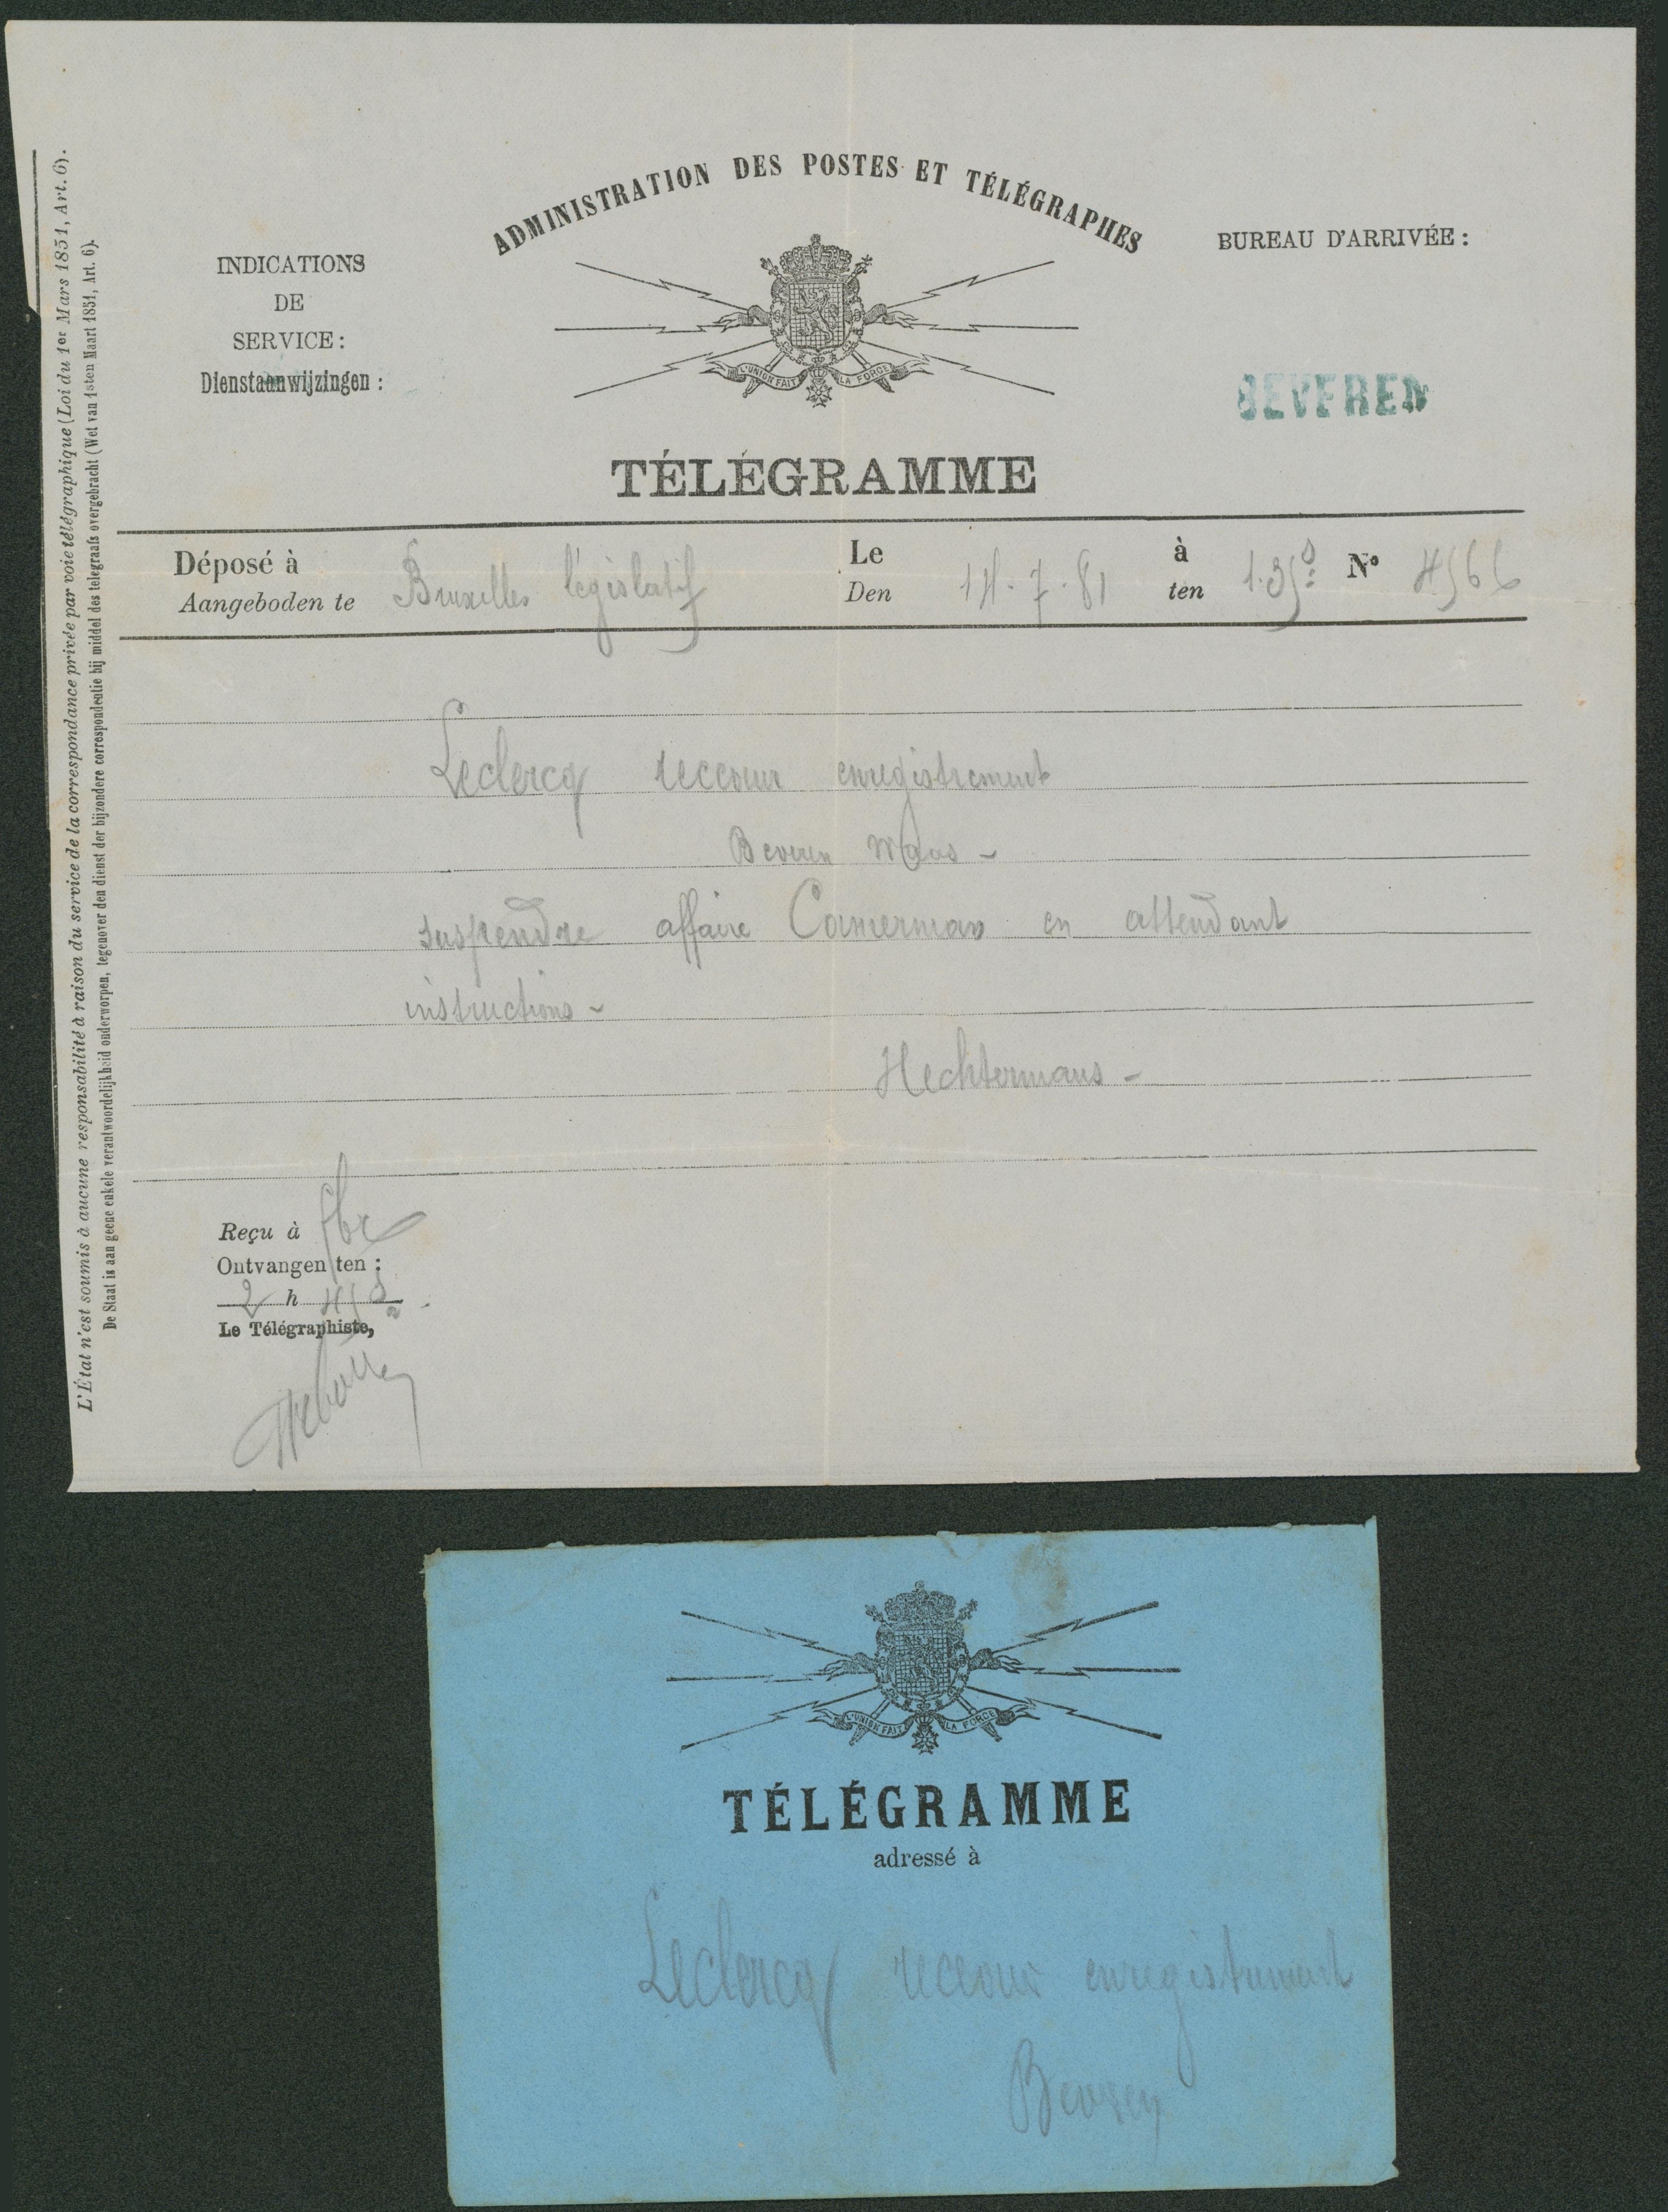 ADMINISTRATION DES POSTES ET TÉLÉGRAPHES
INDICATIONS
DE
SERVICE:
Dienstaanwijzingen:
L'UNION FAIT LA FORCE
BUREAU D'ARRIVÉE:
BEVEREN
TÉLÉGRAMME
Déposé à Bruxelles législatif Le 14.7.81 à 1.35 s N° 4566
Aangeboden te Den ten
Leclercq receveur enregistrement
Beveren Waas -
suspendre affaire Camerman en attendant
instructions -
Hechtermans -
Reçu à
Ontvangen ten:
2 h 45 s
Le Télégraphiste,
L'État n'est soumis à aucune responsabilité à raison du service de la correspondance privée par voie télégraphique (Loi du 1er Mars 1851, Art. 6).
De Staat is aan geene enkele verantwoordelijkheid onderworpen, tegenover den dienst der bijzondere correspondentie bij middel des telegraafs overgebracht (Wet van 1sten Maart 1851, Art. 6).
L'UNION FAIT LA FORCE
TÉLÉGRAMME
adressé à
Leclercq receveur enregistrement
Beveren